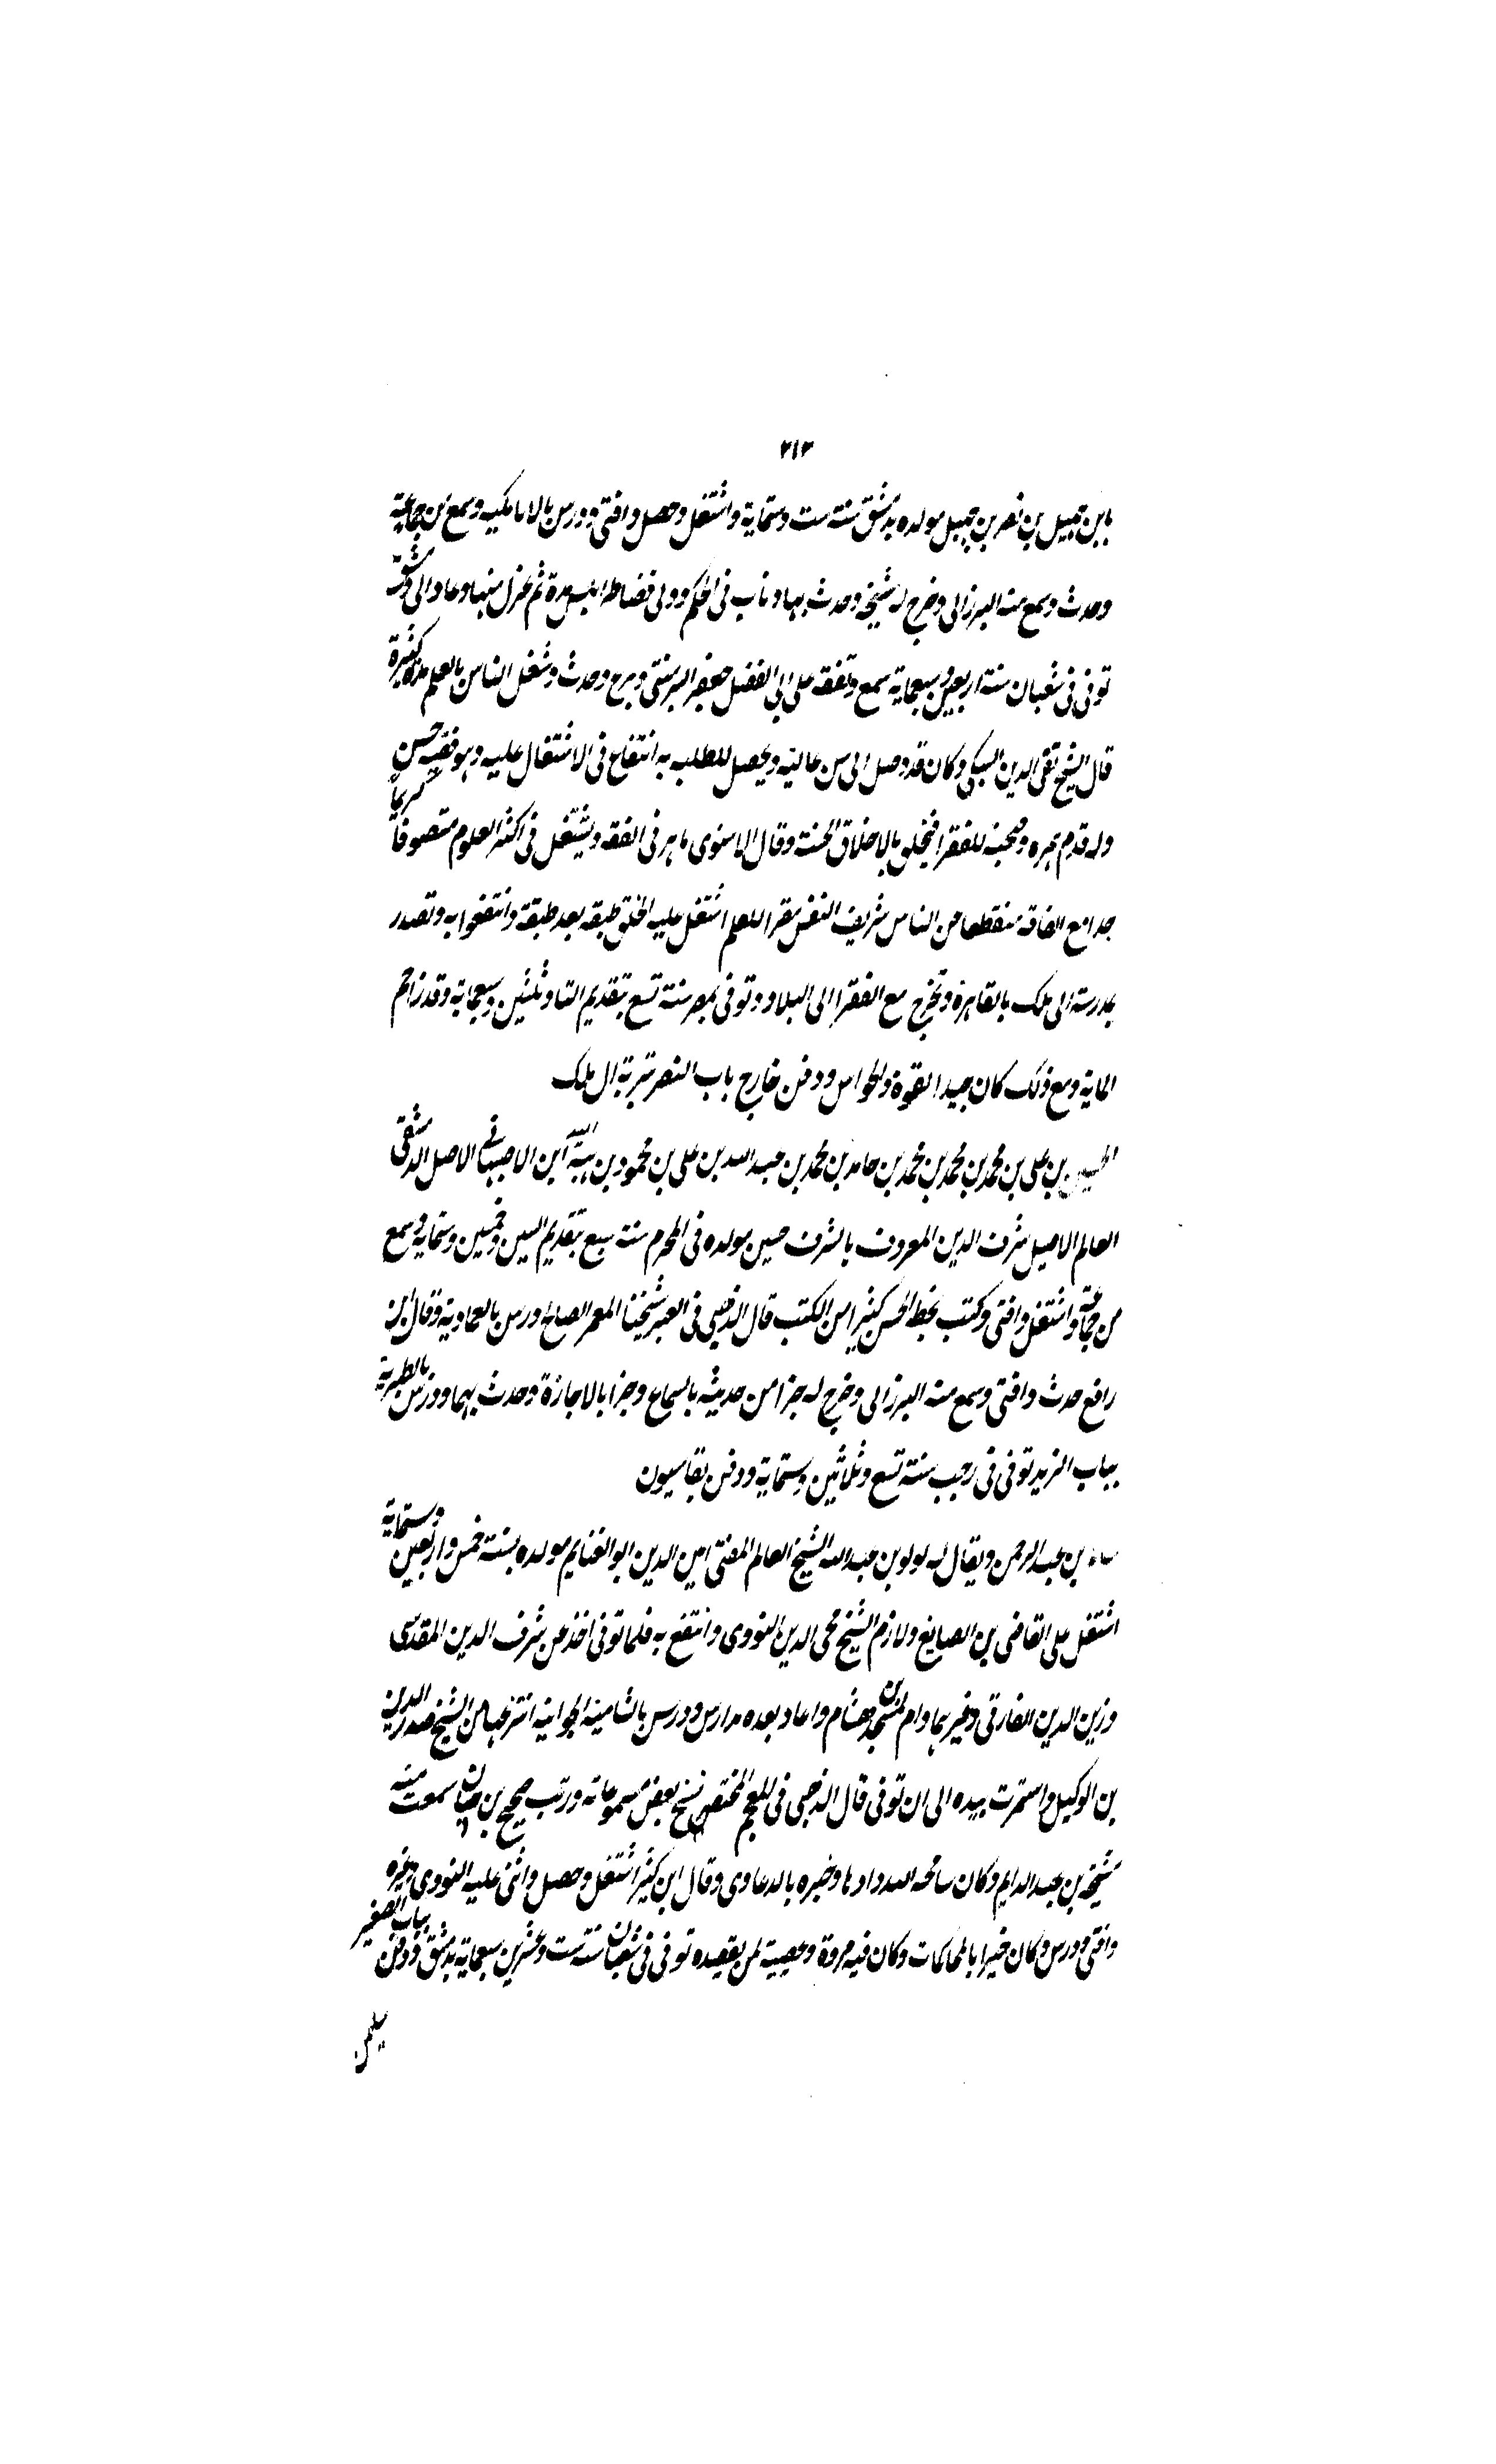 ٣١٣
بابن جميل بن نصر بن جبيل مولده بدمشق سنة ست وستماية واشتغل وحصل وافتى ودرس بالاتابكيه وسمع من جماعة
وحدث وسمع منه البرزالى وخرج له مشيخة وحدث بها وناب فى الحكم وولى قضا طرابلس مدة ثم عزل منها وعاد الى دمشق
توفى فى شعبان سنة اربعين وسبعماية سمع وتفقه على ابى الفضل جعفر التزمنتى وبرع وحدث وشغل الناس بالعلم مدة كثيرة
قال الشيخ تقى الدين السبكى وكان قد وصل الى سن عالية ويحصل للطلبه به انتفاع فى الاشتغال عليه وهو فقيه حسن
وله قدم هجره وصحبة للفقرا متخلق بالاخلاق الحسنة وقال الاسنوى ماهر فى الفقه ويشتغل فى اكثر العلوم متصوفا كريما
جدا مع الفاقه منقطعا عن الناس شريف النفس مقرا للعلم اشتغل عليه الخلق طبقه بعد طبقة وانتفعوا به وتصدر
بمدرسة الى ملك بالقاهرة وتخرج مع الفقرا الى البلاد وتوفى بمصر سنة تسع بتقديم التا وثلثين وسبعماية وقد زاحم
الماية ومع ذلك كان جيد القوة والحواس ودفن خارج باب النصر بتربة ال ملك
الحسين بن على بن محمد بن محمد بن محمد بن حامد بن محمد بن عبد الله بن على بن محمود بن هبة الله ابن الاصبهانى الاصل الدمشقى
العالم الاصيل شرف الدين المعروف بالشرف حسين مولده فى المحرم سنة سبع بتقديم السين وخمسين وستماية وسمع
من جماعة واشتغل وافتى وكتب بخط الحسن كثيرا من الكتب قال الذهبى فى العبر شيخنا المعمر الصالح درس بالعمادية وقال ابن
رافع حدث وافتى وسمع منه البرزالى وخرج له جزا من حديثه بالسماع وجزا بالاجازة وحدث بهما ودرس بالطبرية
بباب البريد توفى فى رجب سنة تسع وثلاثين وستماية ودفن بقاسيون
بن عبد الرحمن ويقال له لولو بن عبد الله الشيخ العالم المفتى امين الدين ابو الغنايم مولده بسنة خمس واربعين وستماية
اشتغل على القاضى بن الصايغ ولازم الشيخ محى الدين النووى وانتفع به فلما توفى اخذ عن شرف الدين المقدسى
وزين الدين الفارقى وغيرهما وام بمسجد بن هشام واعاد بعده مدارس ودرس بالشامية الجوانية انتزعها من الشيخ صدر الدين
بن الوكيل واستمرت بيده الى ان توفى قال الذهبى فى المعجم المختص نسخ بعض مسموعاته ورتب صحيح بن حبان سمعت منه
مشيخة بن عبد الدايم وكان سامحه الله ذا دها وخبره بالدعاوى وقال ابن كثير اشتغل وحصل واثنى عليه النووى وغيره
وافتى ودرس وكان خبيرا بالمحاكمات وكان فيه مروة وعصبية لمن يقصده توفى فى شعبان سنة ست وعشرين سبعماية بدمشق ودفن بباب الصغير